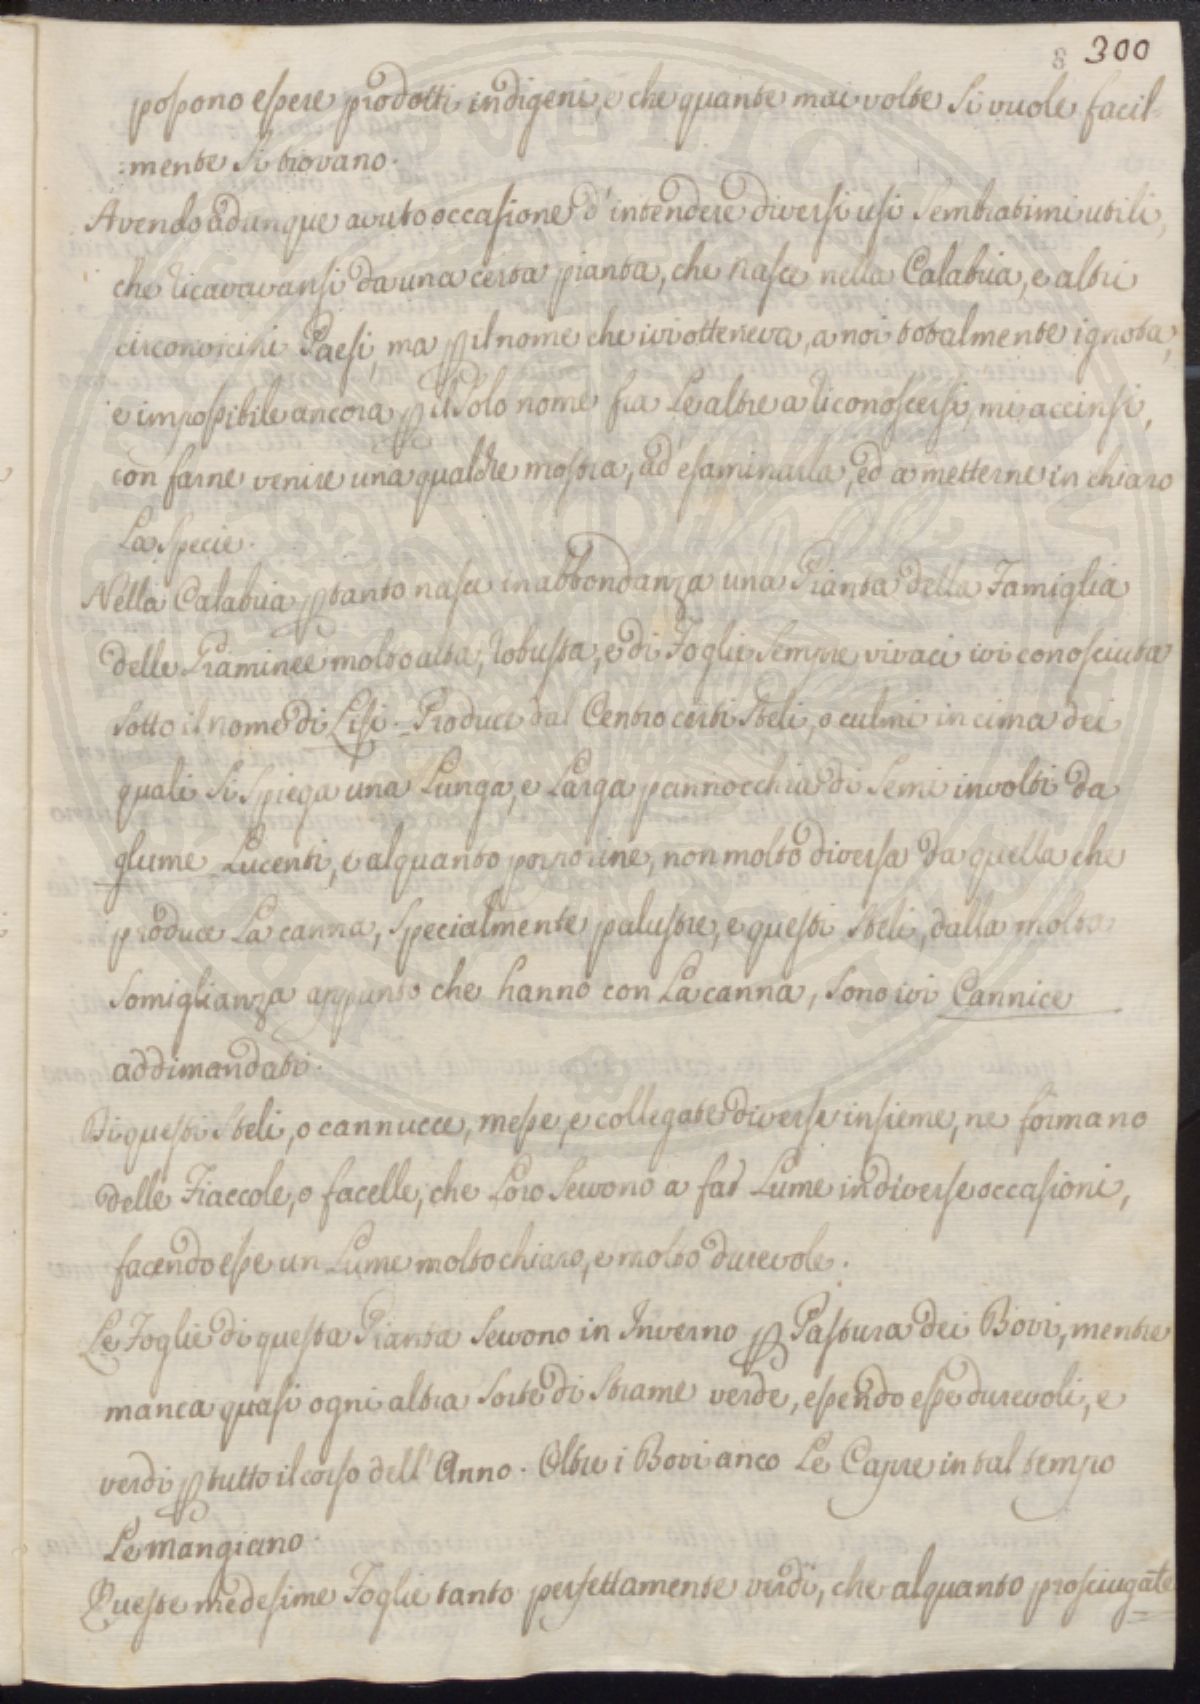 8 300
possono essere prodotti indigeni, e che quante mai volte si vuole facil=
=mente si trovano.
Avendo adunque avuto occasione d'intendere diversi usi sembratimi utili,
che ricavavansi da una certa pianta, che nasce nella Calabria, e altri
circonvicini Paesi, ma ꝑ il nome che ivi otteneva, a noi totalmente ignota,
e impossibile ancora ꝑ il solo nome fra Le altre a riconoscersi, mi accinsi,
con farne venire una qualche mostra, ad esaminarla, ed a metterne in chiaro
La Specie.
Nella Calabria ꝑtanto nasce in abbondanza una Pianta della Famiglia
delle Graminee molto alta, robusta, e di Foglie sempre vivaci ivi conosciuta
sotto il nome di Lisi. Produce dal Centro certi steli, o culmi in cima dei
quali si spiega una Lunga, e Larga pannocchia di semi involti da
glume Lucenti, e alquanto porrorine, non molto diversa da quella che
produce La canna, specialmente palustre, e questi steli, dalla molta
somiglianza appunto che hanno con La canna, sono ivi Cannice
addimandati.
Di questi steli, o cannucce, messe, e collegate diverse insieme, ne formano
delle Fiaccole, o facelle, che Loro servono a far Lume in diverse occasioni,
facendo esse un Lume molto chiaro, e molto durevole.
Le Foglie di questa Pianta servono in Inverno ꝑ Pastura dei Bovi, mentre
manca quasi ogni altra sorte di strame verde, essendo esse durevoli, e
verdi ꝑ tutto il corso dell'Anno. Oltre i Bovi anco Le Capre in tal tempo
Le mangiano.
Queste medesime Foglie tanto perfettamente verdi, che alquanto prosciugate